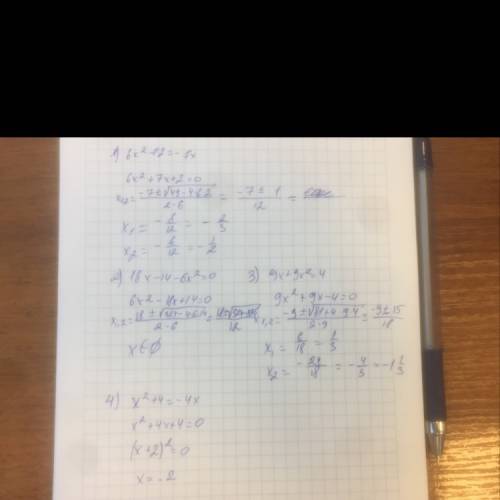 1) 6x²+2=-7x
6x²+7x+2=0
x₁,₂= (-7±√(49-4·6·2))/(2·6) = (-7±1)/12 =
x₁ = -8/12 = -2/3
x₂ = -6/12 = -1/2
2) 18x-14-6x²=0
6x²-18x+14=0
x₁,₂=
x∈∅
3) 9x+9x²=4
9x²+9x-4=0
x₁,₂= (-9±√(81+4·9·4))/(2·9) = (-9±15)/18
x₁ = 6/18 = 1/3
x₂ = -24/18 = -4/3 = -1 1/3
4) x²+4=-4x
x²+4x+4=0
(x+2)²=0
x=-2